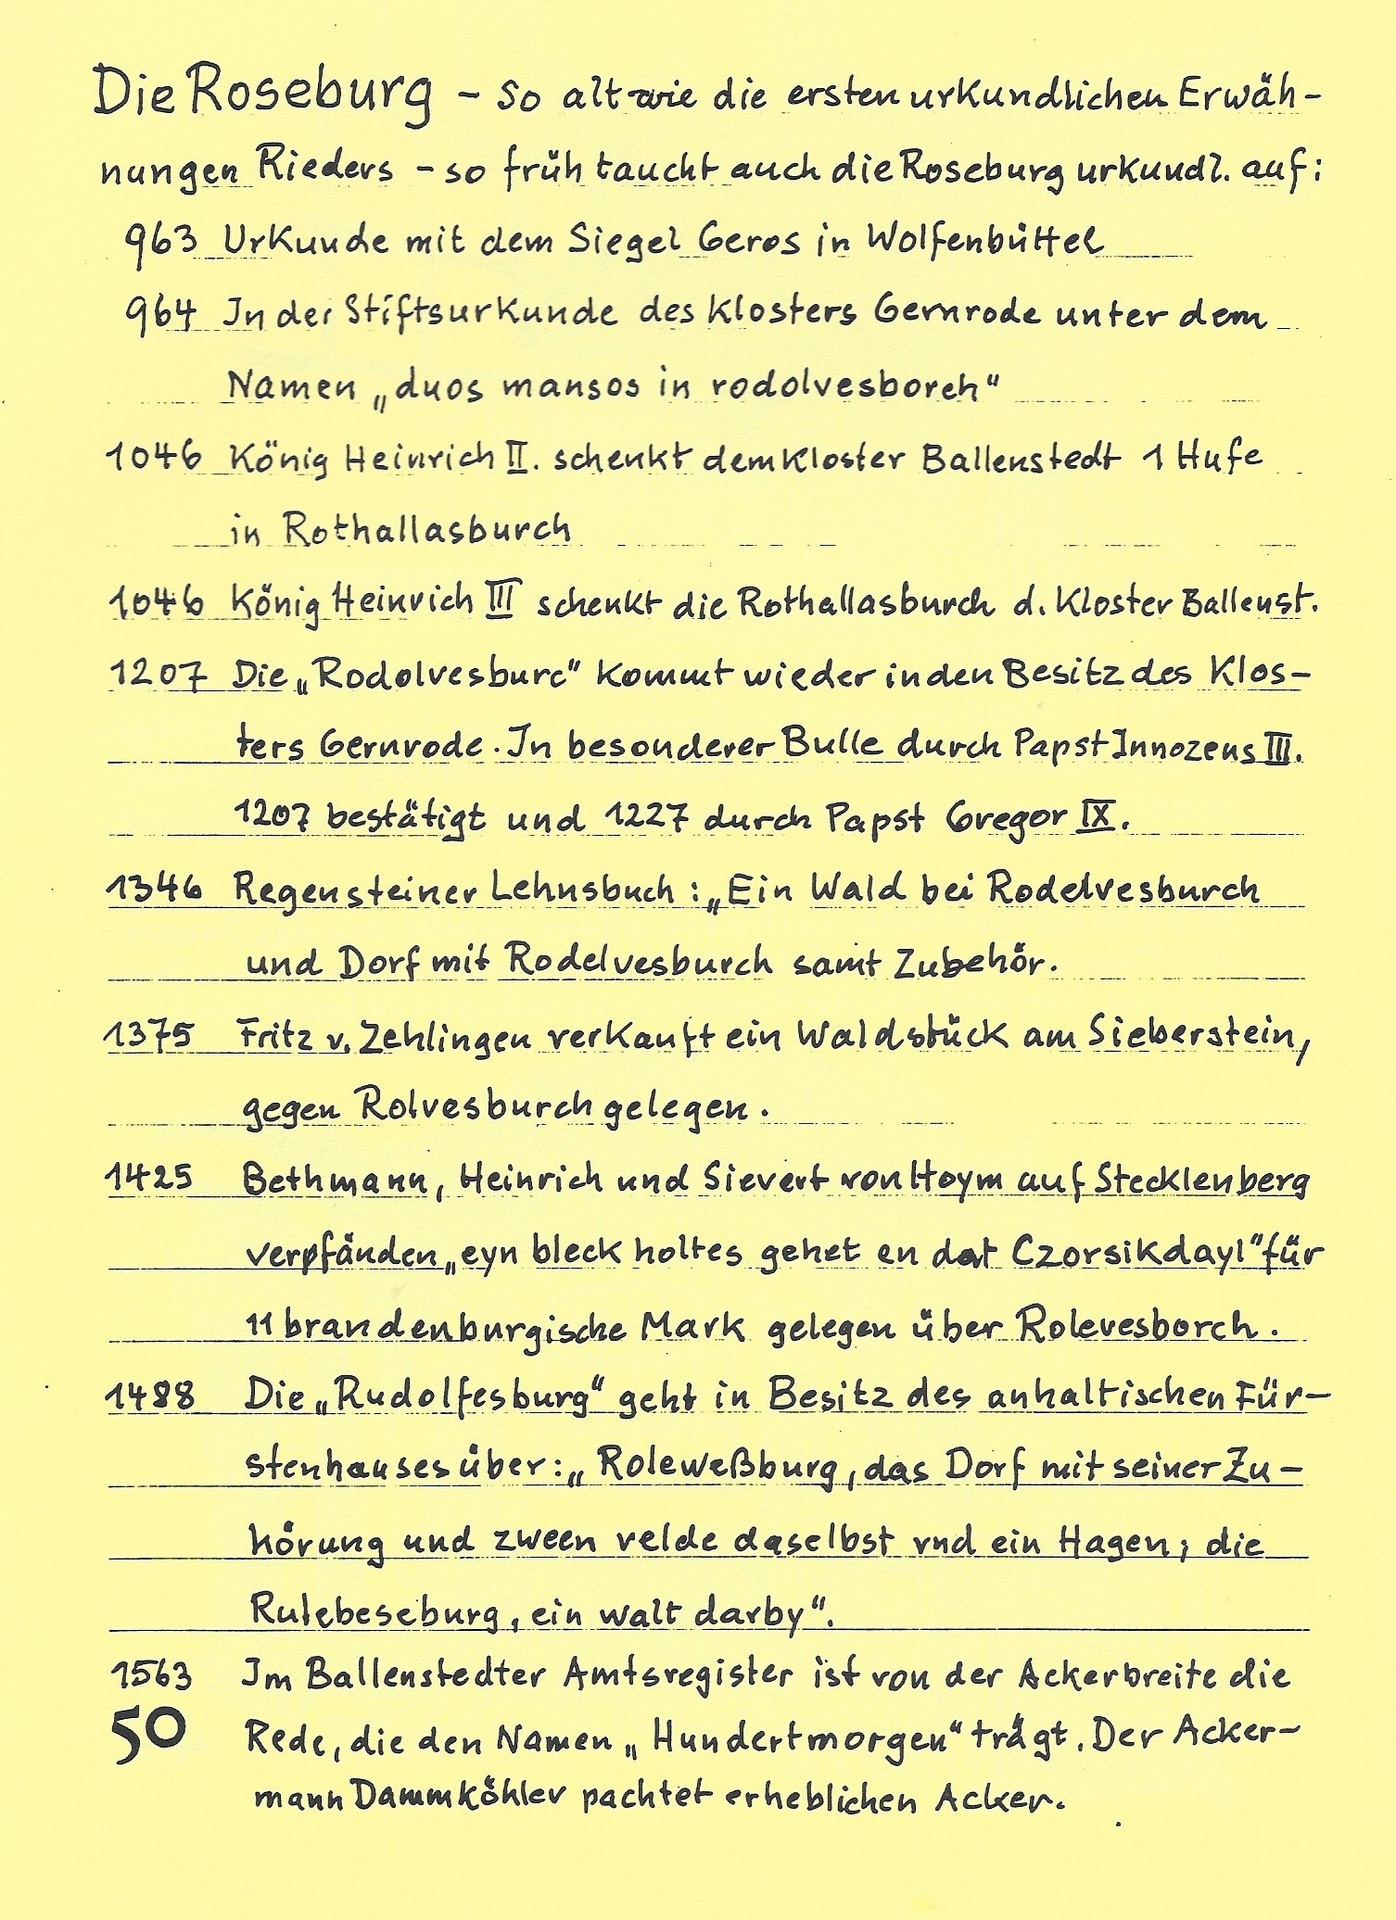 Die Roseburg - so alt wie die ersten urkundlichen Erwäh-
nungen Rieders - so früh taucht auch die Roseburg urkundl. auf:
963 Urkunde mit dem Siegel Geros in Wolfenbüttel
964 In der Stiftsurkunde des Klosters Gernrode unter dem
Namen „duos mansos in rodolvesborch“
1046 König Heinrich II. schenkt dem Kloster Ballenstedt 1 Hufe
in Rothallasburch
1046 König Heinrich III schenkt die Rothallasburch d. Kloster Ballenst.
1207 Die „Rodolvesburc“ kommt wieder in den Besitz des Klos-
ters Gernrode. In besonderer Bulle durch Papst Innozens III.
1207 bestätigt und 1227 durch Papst Gregor IX.
1346 Regensteiner Lehnsbuch: „Ein Wald bei Rodelvesburch
und Dorf mit Rodelvesburch samt Zubehör.
1375 Fritz v. Zehlingen verkauft ein Waldstück am Sieberstein,
gegen Rolvesburch gelegen.
1425 Bethmann, Heinrich und Sievert von Hoym auf Stecklenberg
verpfänden „eyn bleck holtes gehet en dat Czorsikdayl“ für
11 brandenburgische Mark gelegen über Rolevesborch.
1488 Die „Rudolfesburg“ geht in Besitz des anhaltischen Für-
stenhauses über: „Roleweßburg, das Dorf mit seiner Zu-
hörung und zween velde daselbst vnd ein Hagen; die
Rulebeseburg, ein walt darby“.
1563 Im Ballenstedter Amtsregister ist von der Ackerbreite die
50 Rede, die den Namen „Hundertmorgen“ trägt. Der Acker-
mann Dammköhler pachtet erheblichen Acker.